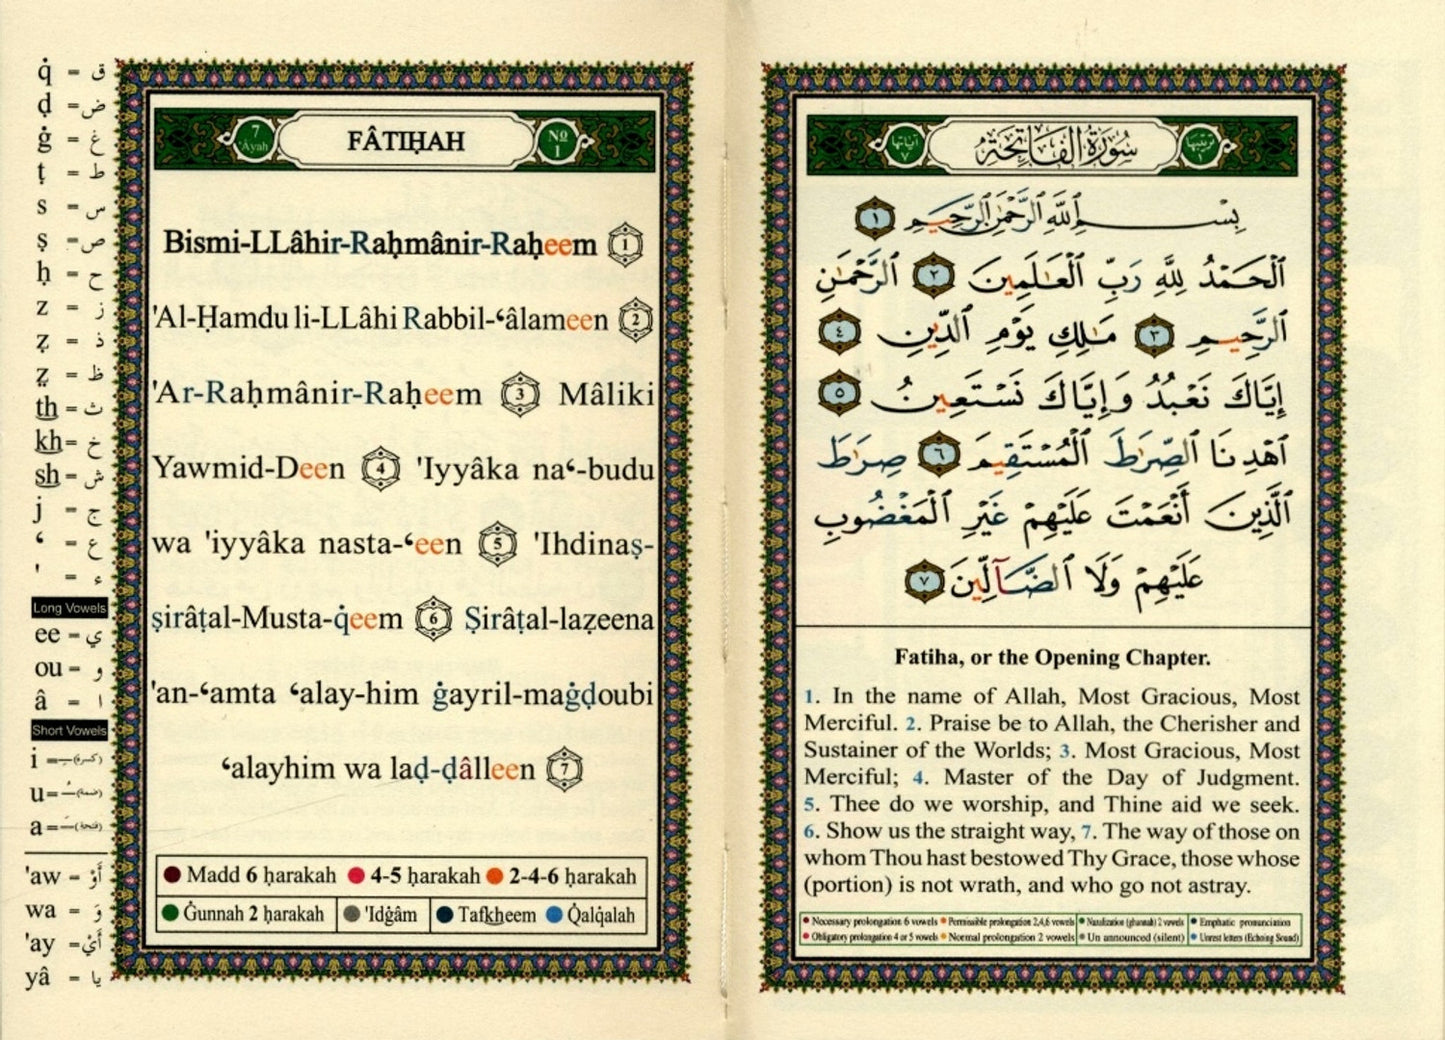 q̇ = ق
ḍ = ض
ġ = غ
ṭ = ط
s = س
ṣ = ص
ḥ = ح
z = ز
ẓ = ذ
ẓ̤ = ظ
th = ث
kh = خ
sh = ش
j = ج
‘ = ع
' = ء
Long Vowels
ee = ي
ou = و
â = ا
Short Vowels
i = ـِ (كسرة)
u = ـُ (ضمة)
a = ـَ (فتحة)
'aw = أَوْ
wa = وَ
'ay = أَيْ
yâ = يا
7 'Âyah
FÂTIḤAH
№ 1
Bismi-LLâhir-Raḥmânir-Raḥeem 1
'Al-Ḥamdu li-LLâhi Rabbil-‘âlameen 2
'Ar-Raḥmânir-Raḥeem 3 Mâliki
Yawmid-Deen 4 'Iyyâka na‘-budu
wa 'iyyâka nasta-‘een 5 'Ihdinaṣ-
ṣirâṭal-Musta-q̇eem 6 Ṣirâṭal-laẓeena
'an-‘amta ‘alay-him ġayril-maġḍoubi
‘alayhim wa laḍ-ḍâlleen 7
Madd 6 ḥarakah 4-5 ḥarakah 2-4-6 ḥarakah
Ġunnah 2 ḥarakah 'Idġâm Tafkheem Q̇alq̇alah
ترتيبها ١
سُورَةُ الفَاتِحَة
آياتها ٧
بِسْمِ ٱللَّهِ ٱلرَّحْمَٰنِ ٱلرَّحِيمِ ١
ٱلْحَمْدُ لِلَّهِ رَبِّ ٱلْعَٰلَمِينَ ٢ ٱلرَّحْمَٰنِ
ٱلرَّحِيمِ ٣ مَٰلِكِ يَوْمِ ٱلدِّينِ ٤
إِيَّاكَ نَعْبُدُ وَإِيَّاكَ نَسْتَعِينُ ٥
ٱهْدِنَا ٱلصِّرَٰطَ ٱلْمُسْتَقِيمَ ٦ صِرَٰطَ
ٱلَّذِينَ أَنْعَمْتَ عَلَيْهِمْ غَيْرِ ٱلْمَغْضُوبِ
عَلَيْهِمْ وَلَا ٱلضَّآلِّينَ ٧
Fatiha, or the Opening Chapter.
1. In the name of Allah, Most Gracious, Most
Merciful. 2. Praise be to Allah, the Cherisher and
Sustainer of the Worlds; 3. Most Gracious, Most
Merciful; 4. Master of the Day of Judgment.
5. Thee do we worship, and Thine aid we seek.
6. Show us the straight way, 7. The way of those on
whom Thou hast bestowed Thy Grace, those whose
(portion) is not wrath, and who go not astray.
Necessary prolongation 6 vowels Permissible prolongation 2,4,6 vowels Nazalization (ghunnah) 2 vowels Emphatic pronunciation
Obligatory prolongation 4 or 5 vowels Normal prolongation 2 vowels Un announced (silent) Unrest letters (Echoing Sound)